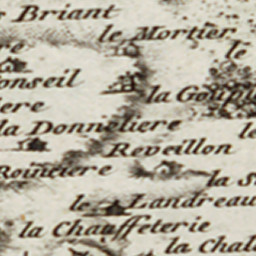 Briant
le Mortier
le
onseil
iere
la Goupil
la Donneliere
le
Reveillon
Roinciere
la S
le Landreau
la Chauffeterie
la Chal